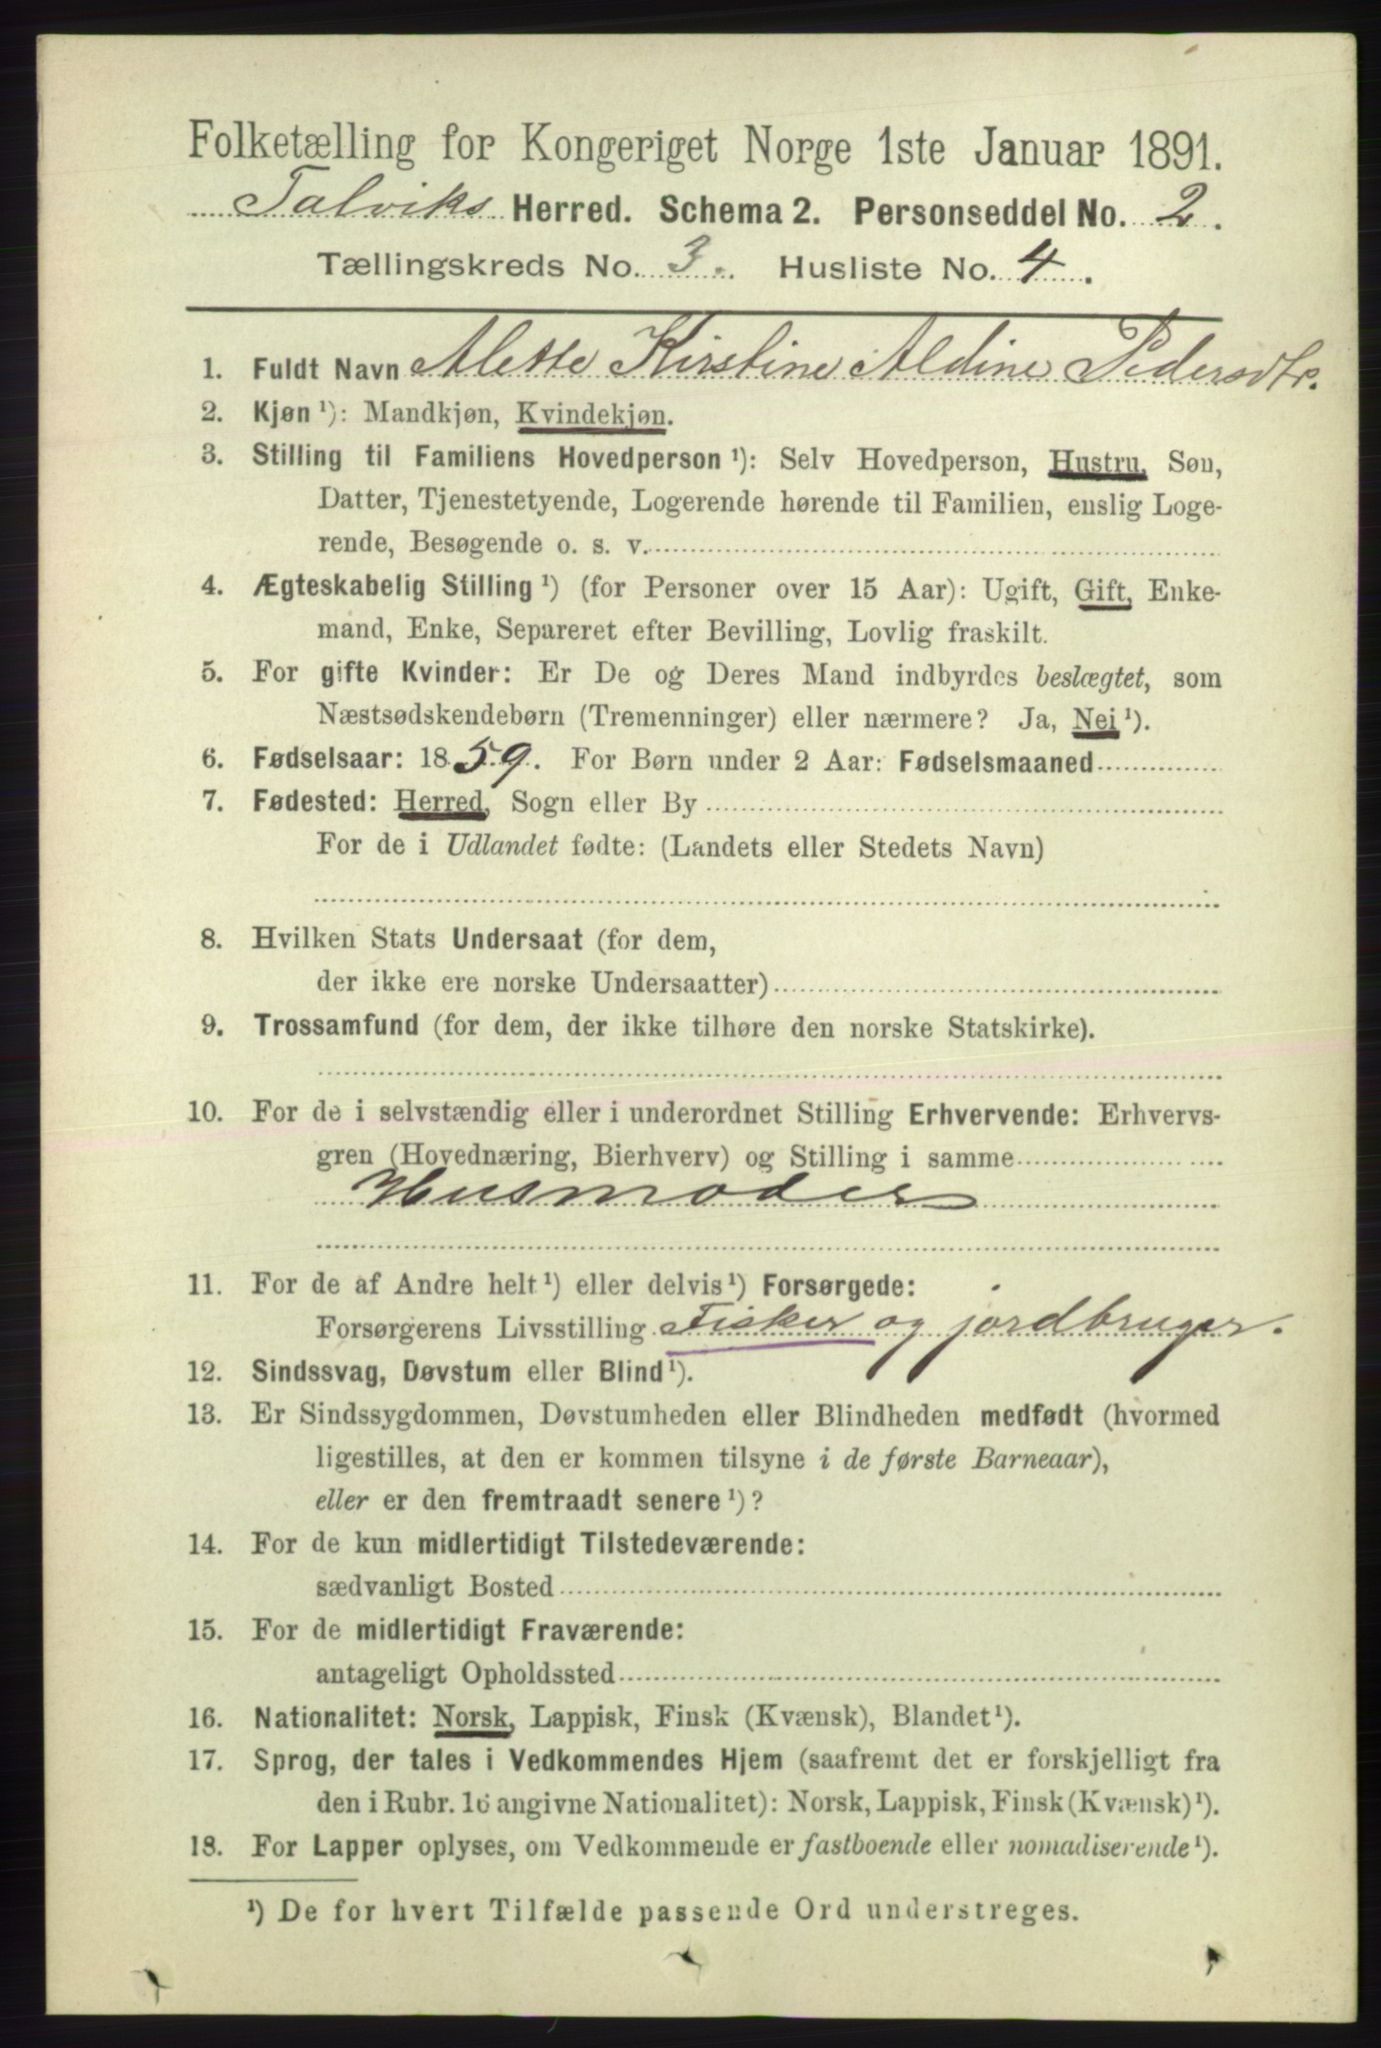 Folketælling for Kongeriget Norge 1ste Januar 1891.
Talviks Herred. Schema 2. Personseddel No. 2.
Tællingskreds No. 3. Husliste No. 4.
1. Fuldt Navn Alette Kirstine Aldine Pedersdtr.
2. Kjøn ¹): Mandkjøn, Kvindekjøn.
3. Stilling til Familiens Hovedperson ¹): Selv Hovedperson, Hustru, Søn,
Datter, Tjenestetyende, Logerende hørende til Familien, enslig Loge-
rende, Besøgende o. s. v.
4. Ægteskabelig Stilling ¹) (for Personer over 15 Aar): Ugift, Gift, Enke-
mand, Enke, Separeret efter Bevilling, Lovlig fraskilt.
5. For gifte Kvinder: Er De og Deres Mand indbyrdes beslægtet, som
Næstsødskendebørn (Tremenninger) eller nærmere? Ja, Nei ¹).
6. Fødselsaar: 1859. For Børn under 2 Aar: Fødselsmaaned
7. Fødested: Herred, Sogn eller By
For de i Udlandet fødte: (Landets eller Stedets Navn)
8. Hvilken Stats Undersaat (for dem,
der ikke ere norske Undersaatter)
9. Trossamfund (for dem, der ikke tilhøre den norske Statskirke).
10. For de i selvstændig eller i underordnet Stilling Erhvervende: Erhvervs-
gren (Hovednæring, Bierhverv) og Stilling i samme
Husmoder
11. For de af Andre helt ¹) eller delvis ¹) Forsørgede:
Forsørgerens Livsstilling Fisker og jordbruger.
12. Sindssvag, Døvstum eller Blind ¹).
13. Er Sindssygdommen, Døvstumheden eller Blindheden medfødt (hvormed
ligestilles, at den er kommen tilsyne i de første Barneaar),
eller er den fremtraadt senere ¹)?
14. For de kun midlertidigt Tilstedeværende:
sædvanligt Bosted
15. For de midlertidigt Fraværende:
antageligt Opholdssted
16. Nationalitet: Norsk, Lappisk, Finsk (Kvænsk), Blandet ¹).
17. Sprog, der tales i Vedkommendes Hjem (saafremt det er forskjelligt fra
den i Rubr. 16 angivne Nationalitet): Norsk, Lappisk, Finsk (Kvænsk) ¹).
18. For Lapper oplyses, om Vedkommende er fastboende eller nomadiserende ¹).
¹) De for hvert Tilfælde passende Ord understreges.